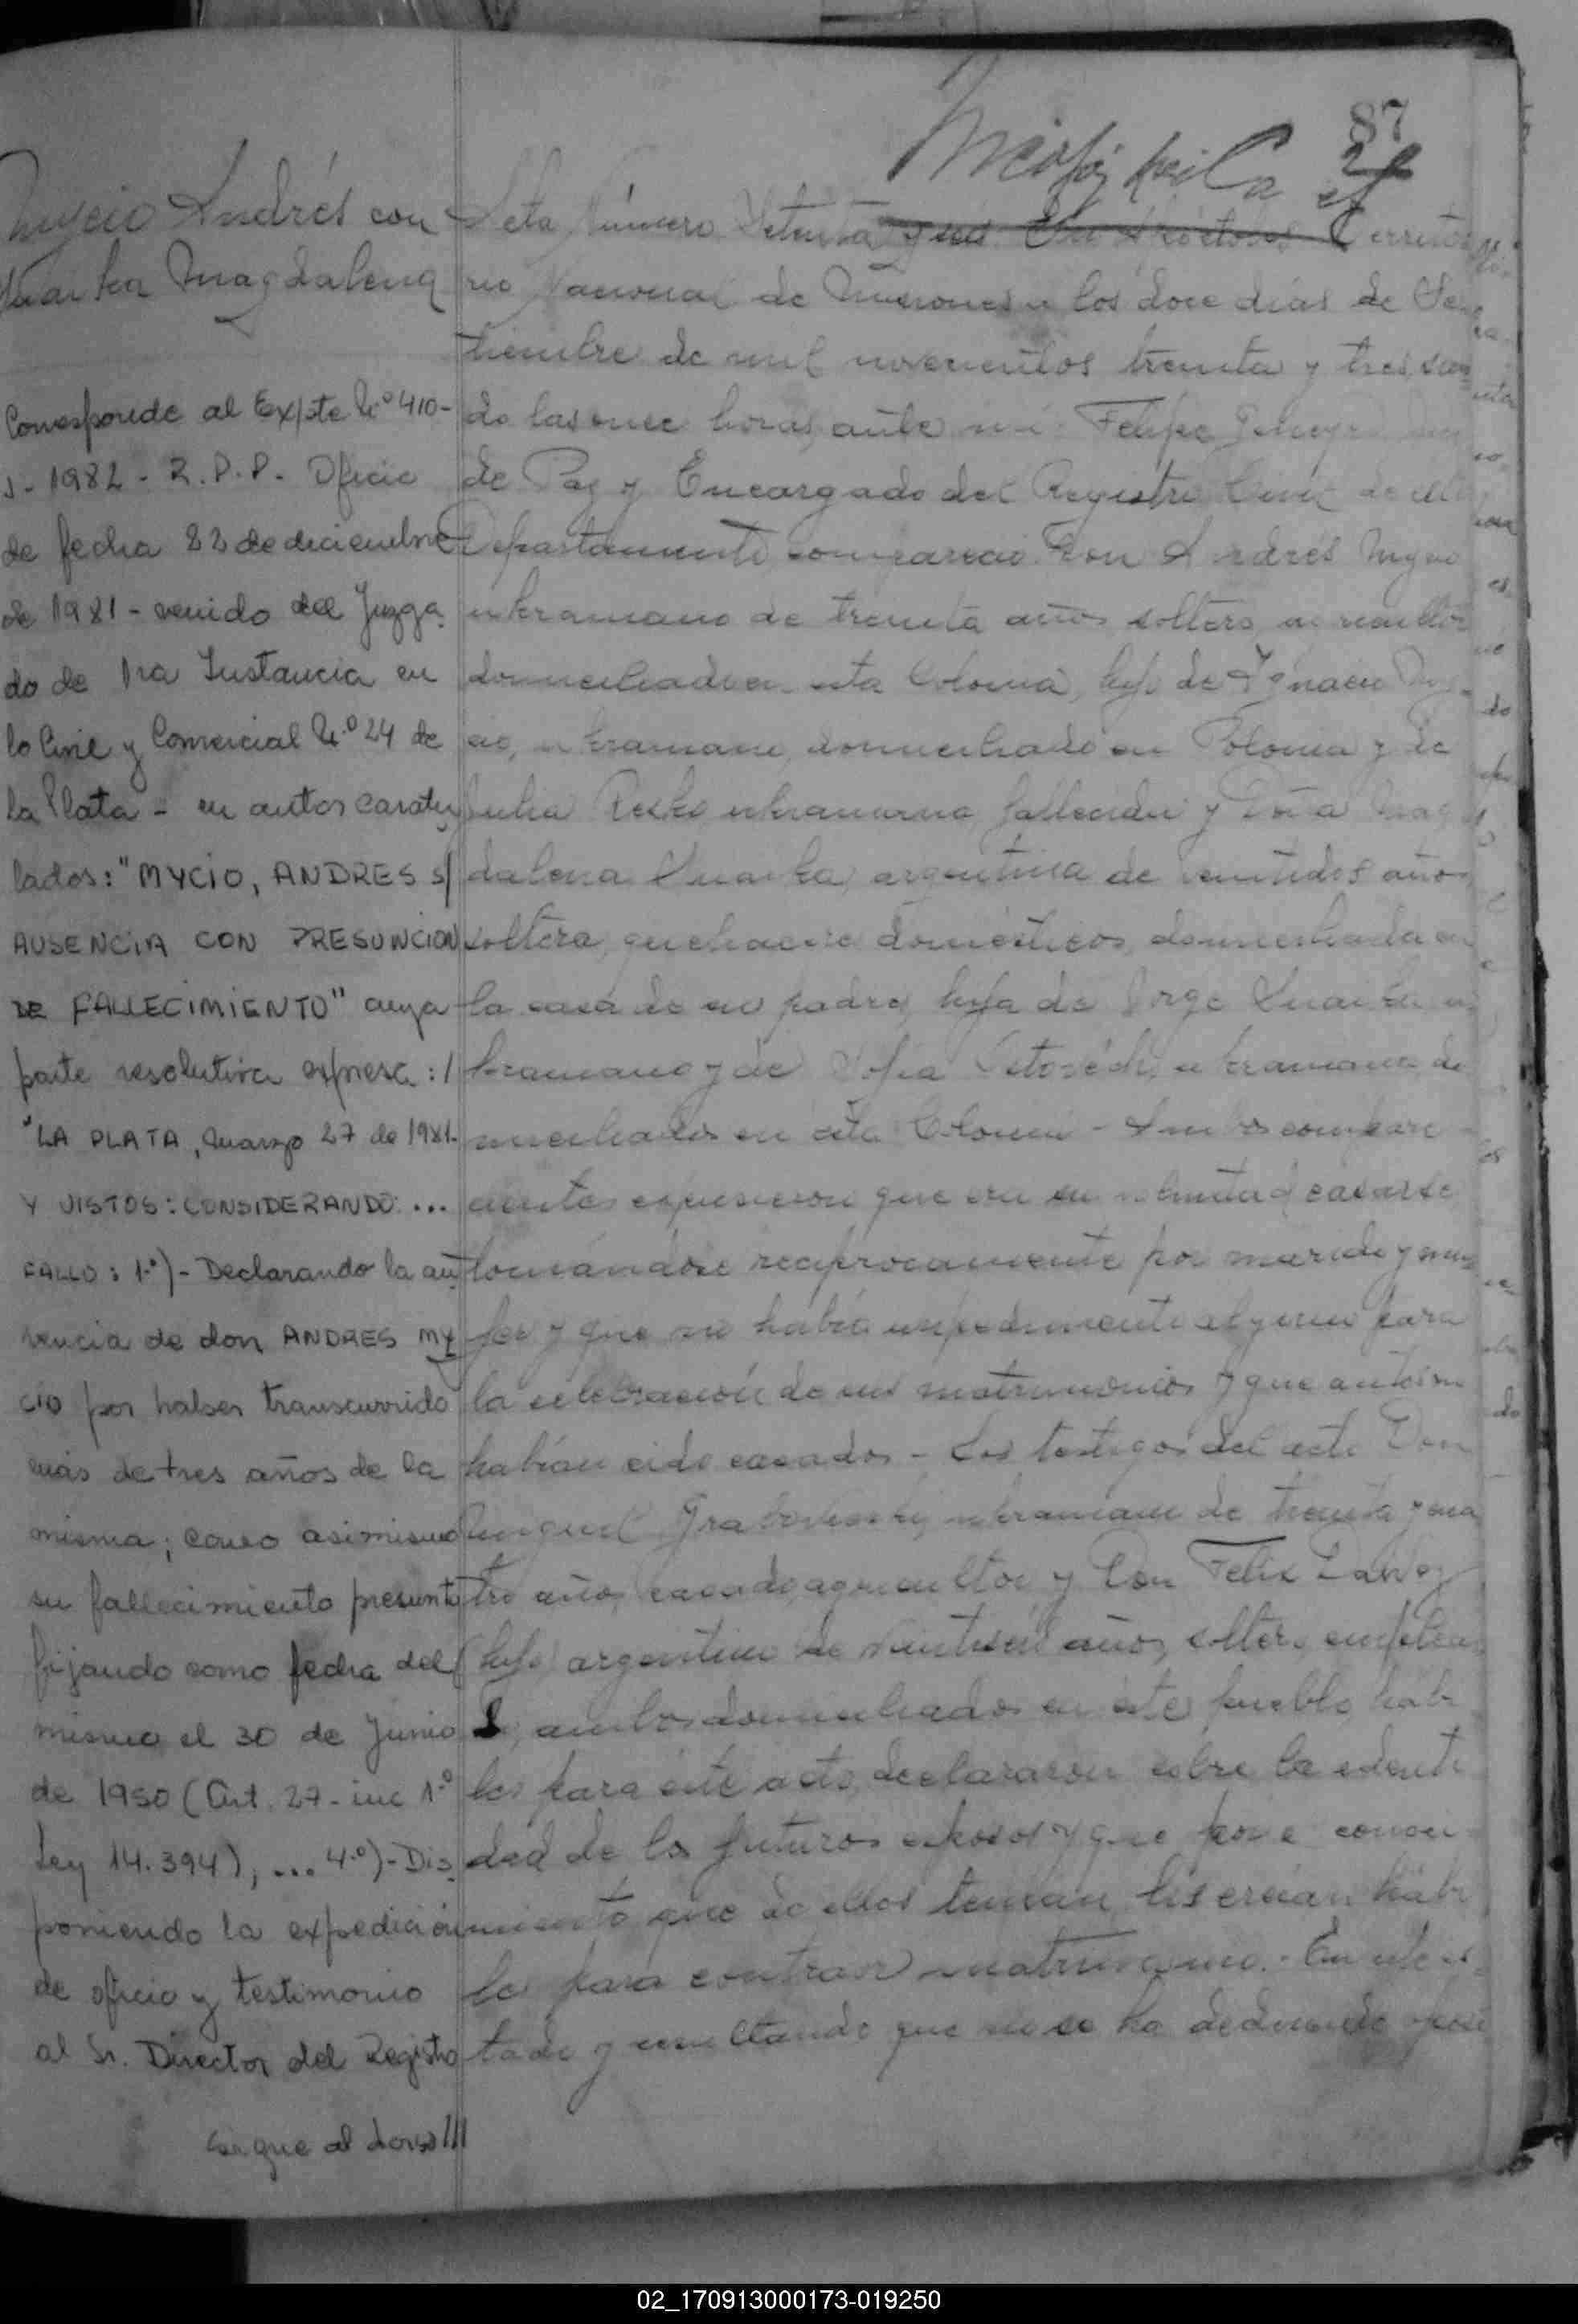 87
Mycio Andrés con
Magdalena
Corresponde al Expte N.º 410-
J- 1982 - R.P.P. Oficio
de fecha 22 de diciembre
de 1981 - venido del Juzga
do de 1ra Instancia en
lo Civil y Comercial N.º 24 de
la Plata - en autos caratu
lados: "MYCIO, ANDRES s/
AUSENCIA CON PRESUNCION
DE FALLECIMIENTO" cuya
parte resolutiva expresa: /
"LA PLATA, Marzo 27 de 1981.
Y VISTOS: CONSIDERANDO: ...
FALLO: 1.º) - Declarando la au
sencia de don ANDRES MY
CIO por haber transcurrido
más de tres años de la
misma; como asimismo
su fallecimiento presunto
fijando como fecha del
mismo el 30 de Junio
de 1950 (Art. 27 - inc 1.º
Ley 14.394), ... 4.º) - Dis
poniendo la expedición
de oficio y testimonio
al Sr. Director del Registro
Sigue al dorso ///
Acta Número Setenta y En Apóstoles Territo
rio Nacional de Misiones a los doce días de Se
tiembre de mil novecientos treinta y tres, sien
do las once horas, ante mí: Felipe
de Paz y Encargado del Registro Civil de este
Departamento, compareció Don Andrés Mycio
ukraniano de treinta años, soltero, agricultor
domiciliado en esta Colonia, hijo de Ignacio My
cio, ukraniano, domiciliado en Polonia y de
Julia ukraniana, fallecida y Doña Mag
dalena argentina de veintidos años
soltera, quehaceres domésticos, domiciliada en
la casa de su padre, hija de Jorge u
kraniano y de Sofia ukraniana, do
miciliados en esta Colonia - Ambos compare
cientes expusieron que era su voluntad casarse
tomándose recíprocamente por marido y mu
jer y que no había impedimento alguno para
la celebración de su matrimonio y que
habían sido casados - Los testigos del acto Don
Miguel ukraniano de treinta y cua
tro años, casado, agricultor y Don Felix
hijo, argentino de años, soltero, emplea
do, ambos domiciliados en este pueblo, hábi
les para este acto, declararon sobre la identi
dad de los futuros esposos y que por el conoci
miento que de ellos tenían, los creían hábi
les para contraer matrimonio. - En este es
tado y resultando que no se ha deducido oposi
02_170913000173-019250